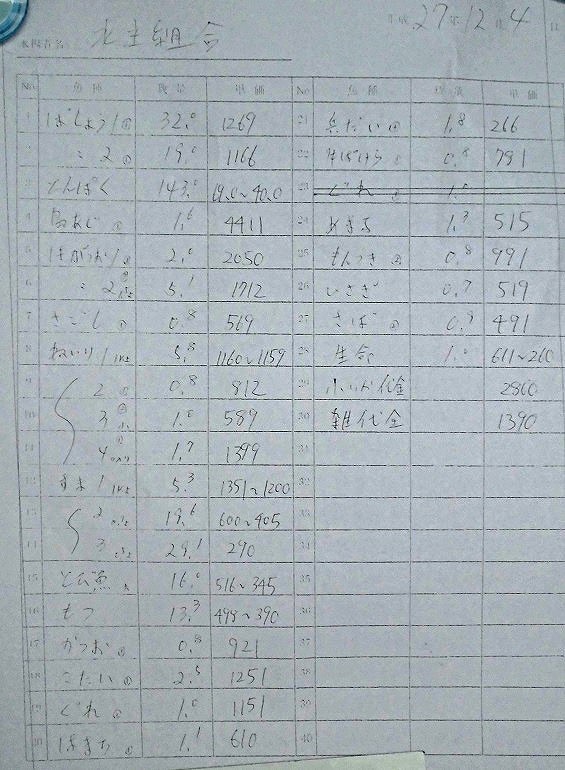 平成 27年 12月 4日
水揚者名 水主組合
No. 魚種 数量 単価 No. 魚種 数量 単価
1 ばしょう1 32.0 1269 21 1.8 266
2 〃 2 19.0 1166 22 0.8 791
3 とんぼく 143.0 40.0 23 ぐれ 1.0
4 1.6 4411 24 1.3 515
5 はがつお1 2.0 2050 25 もんつき 0.8 991
6 〃 2 5.1 1712 26 いさぎ 0.7 519
7 さごし 0.8 569 27 さば 491
8 ねいり1 5.8 1160~1159 28 1.0 611~260
9 2 0.8 812 29 小いか代金 2860
10 3 1.0 589 30 雑代金 1390
11 4 1.7 1399 31
12 すま1 5.3 1351~1200 32
13 2 19.6 600~405 33
14 3 29.1 290 34
15 とび魚 16.0 516~345 35
16 もつ 13.3 498~390 36
17 かつお 0.8 921 37
18 こだい 2.5 1251 38
19 ぐれ 1.0 1151 39
20 はまち 1.1 610 40